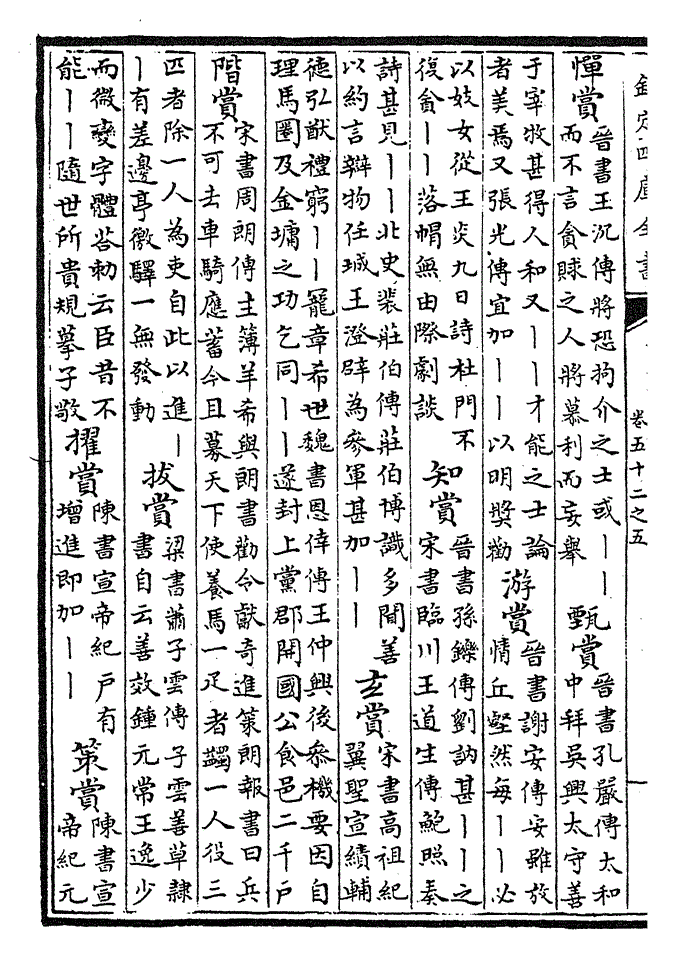 欽定四庫全書
卷五十二之五
憚賞 晉書王沉傳將恐拘介之士或丨丨而不言貪賕之人將慕利而妄舉 甄賞 晉書孔嚴傳太和中拜吳興太守善
于宰牧甚得人和又丨丨才能之士論者美焉又張光傳宜加丨丨以明獎勸 游賞 晉書謝安傳安雖放情丘壑然每丨丨必
以妓女從王炎九日詩杜門不復貪丨丨落帽無由際劇談 知賞 晉書孫鑠傳劉訥甚丨丨之宋書臨川王道生傳鮑照奏
詩甚見丨丨北史裴莊伯傳莊伯博識多聞善以約言辯物任城王澄辟為參軍甚加丨丨 玄賞 宋書高祖紀翼聖宣績輔
德弘猷禮窮丨丨寵章希世魏書恩倖傳王仲興後參機要因自理馬圈及金墉之功乞同丨丨遂封上黨郡開國公食邑二千戶
階賞 宋書周朗傳主簿羊希與朗書勸令獻奇進策朗報書曰兵不可去車騎應蓄今且募天下使養馬一疋者蠲一人役三
匹者除一人為吏自此以進丨丨有差邊亭徼驛一無發動 拔賞 梁書蕭子雲傳子雲善草隸書自云善效鍾元常王逸少
而微變字體答勅云臣昔不能丨丨隨世所貴規摹子敬 擢賞 陳書宣帝紀戶有增進即加丨丨 策賞 陳書宣帝紀元